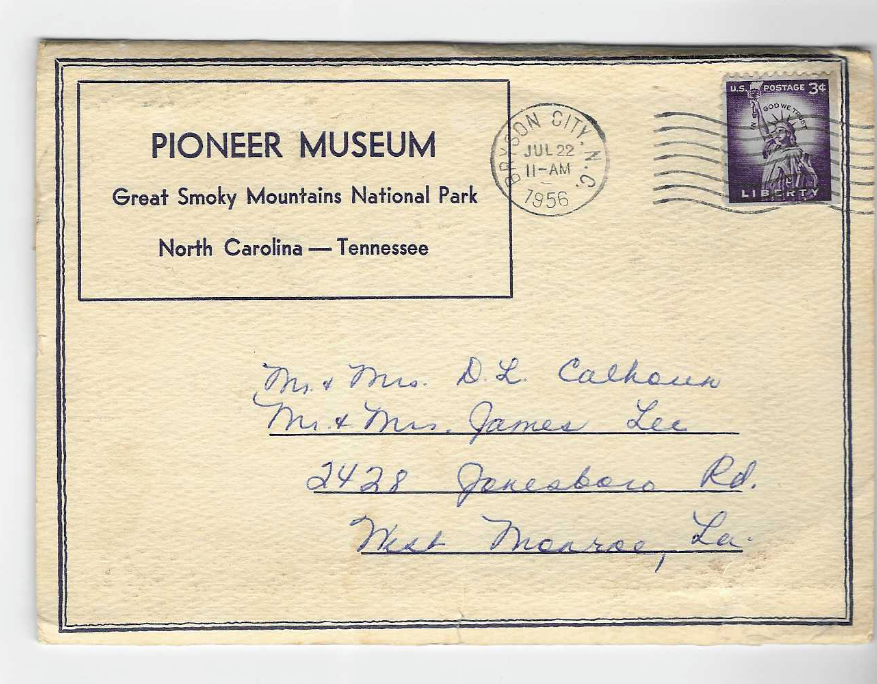 PIONEER MUSEUM
Great Smoky Mountains National Park
North Carolina — Tennessee
BRYSON CITY, N.C.
JUL 22
11-AM
1956
U.S. POSTAGE 3¢
IN GOD WE TRUST
LIBERTY
Mr. & Mrs. D. L. Calhoun
Mr. & Mrs. James Lee
2428 Jonesboro Rd.
West Monroe, La.